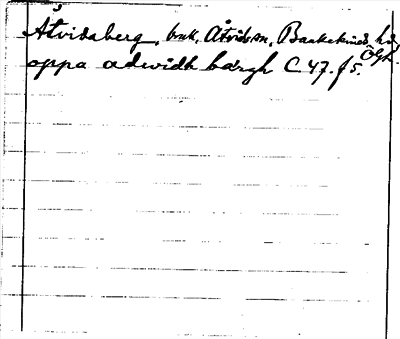 Åtvidaberg, bruk, Åtvids sn, Bankekinds hd Ögl.
oppa adwidh bärgh C 47. f 5.